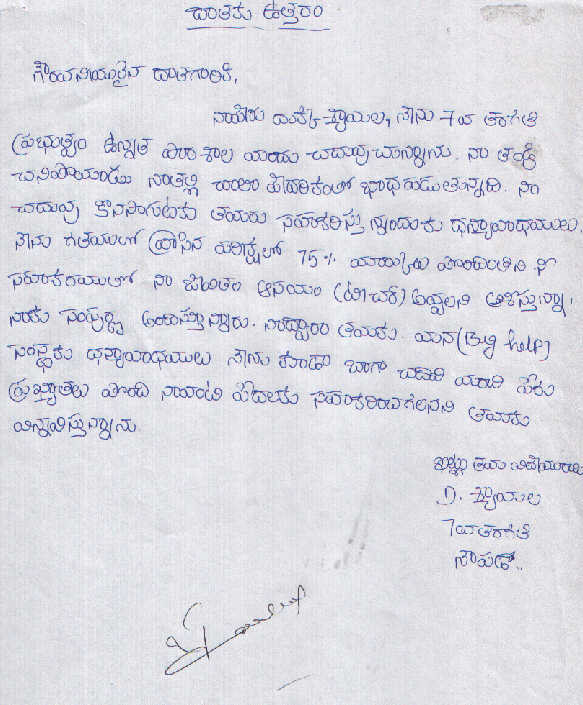 దాతకు ఉత్తరం
గౌరవనీయులైన దాతగారికి,
నాపేరు శ్యామల, నేను 7వ తరగతి
ప్రభుత్వం ఉన్నత పాఠశాల యందు చదువుచున్నాను. నా తండ్రి
చనిపోయాడు నాతల్లి చాలా పేదరికంలో బాధపడుతున్నది. నా
చదువు కొనసాగుటకు తమరు సహకరిస్తున్నందుకు ధన్యవాదములు.
నేను గతములో వ్రాసిన పరీక్షలో 75% మార్కులు పొందితిని మీ
సహకారములో నా జీవితం ఆశయం (టీచర్) అవ్వాలని ఆశిస్తున్నా.
నాకు సంపూర్ణ అందిస్తున్నారు. నాద్వారా తమకు. మన (Big help)
సంస్థకు ధన్యవాదములు నేను కూడా బాగా చదివి మంచి పేరు
ప్రఖ్యాతలు పొంది నాలాంటి పేదలకు సహకరించగలనని తమకు
విన్నవిస్తున్నాను.
ఇట్లు తమ విధేయురాలు
D. శ్యామల
7వతరగతి
నౌపడ..